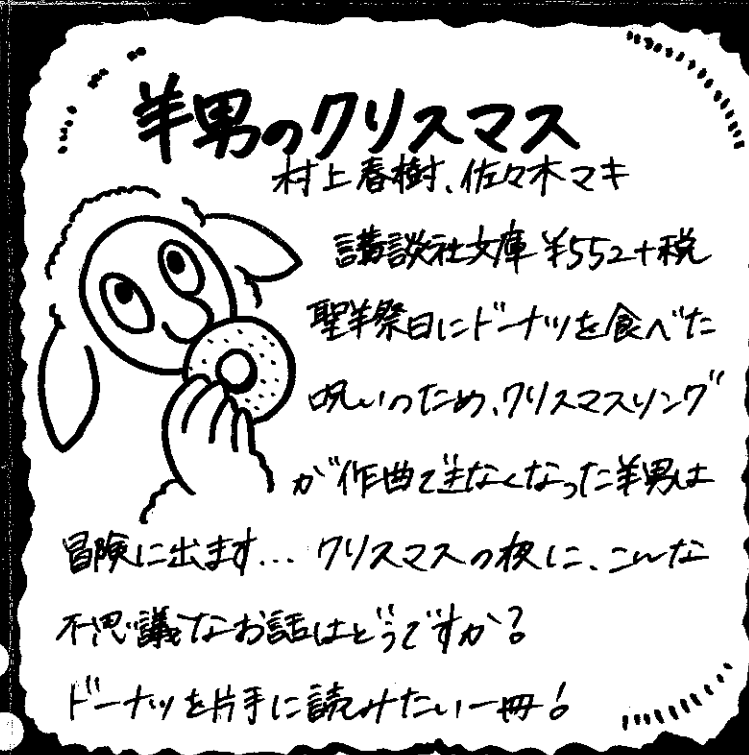 羊男のクリスマス
村上春樹、佐々木マキ
講談社文庫 ¥552+税
聖羊祭日にドーナツを食べた
呪いのため、クリスマスソング
が作曲できなくなった羊男は
冒険に出ます... クリスマスの夜に、こんな
不思議なお話はどうですか?
ドーナツを片手に読みたい一冊!